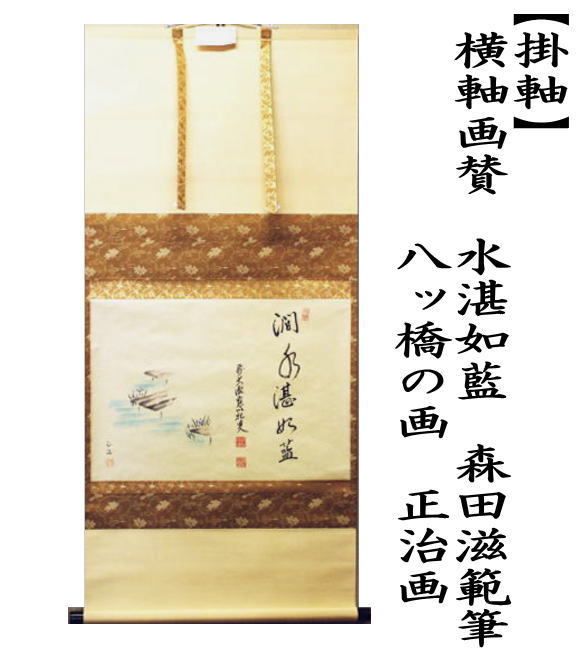 【掛軸】
横軸画賛
水湛如藍 森田滋範筆
八ッ橋の画 正治画
澗水湛如藍